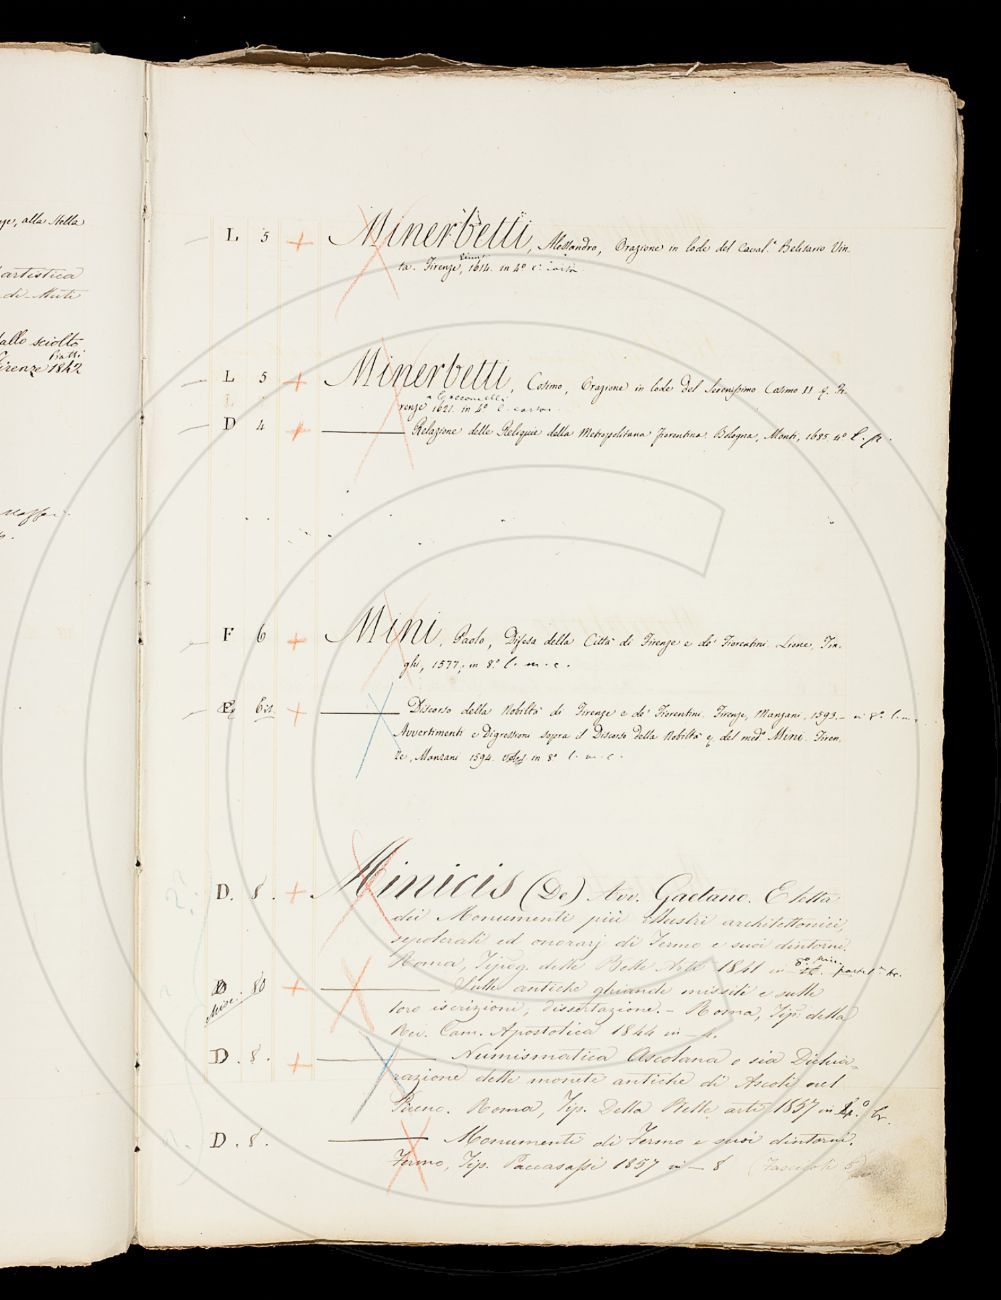 alla Stella
artistica
di
sciolto
Batti
Firenze 1842
L 5 + Minerbetti, Alessandro, Orazione in lode del Caval.e Belisario Vin-
ta. Firenze, 1614. in 4º c. carta
L 5 + Minerbetti, Cosimo, Orazione in lode del Serenissimo Cosimo II. Fi-
renze 1621. in 4º
D 4 + Relazione delle Reliquie della Metropolitana Fiorentina. Bologna, Monti, 1685. 4º l. p.
F 6 + Mini, Paolo, Difesa della Città di Firenze e de' Fiorentini. Lione, Tin-
ghi, 1577, in 8º l. m. c.
E 6 + Discorso della Nobiltà di Firenze e de' Fiorentini. Firenze, Manzani, 1593. in 8º l. m.
Avvertimenti e Digressioni sopra il Discorso della Nobiltà & del med.º Mini. Firen-
ze, Manzani 1594. in 8º l. m. c.
D. 8. + Minicis (De) Avv. Gaetano. Eletta
dei Monumenti più illustri architettonici,
sepolcrali ed onorarj di Fermo e suoi dintorni.
Roma, Tipog. delle Belle Arti 1841 in
D. 80 + Sulle antiche ghiande missili e sulle
Misc.
loro iscrizioni, dissertazione. - Roma, Tip. della
Rev. Cam. Apostolica 1844 in - 4.
D. 8. + Numismatica Ascolana o sia Dichia-
razione delle monete antiche di Ascoli nel
Piceno. Roma, Tip. Della Belle arti 1857 in 4.º br.
D. 8. Monumenti di Fermo e suoi dintorni.
Fermo, Tip. Paccasassi 1857 in - 8 (Fascicoli 5)